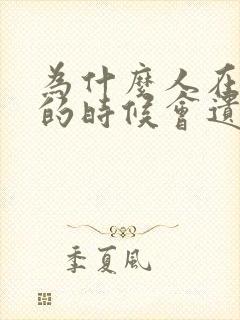 為什麼人在
的時候會遺
季夏風